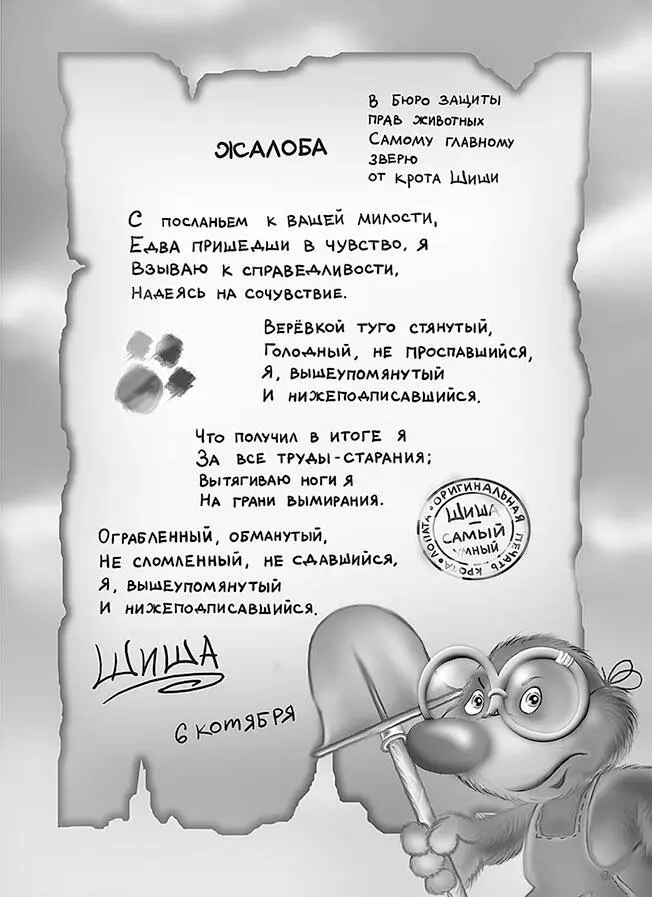 В Бюро защиты
прав животных
Самому главному
зверю
от крота Шиши
ЖАЛОБА
С посланьем к вашей милости,
Едва пришедши в чувство, я
Взываю к справедливости,
Надеясь на сочувствие.
Верёвкой туго стянутый,
Голодный, не проспавшийся,
Я, вышеупомянутый
И нижеподписавшийся.
Что получил в итоге я
За все труды-старания;
Вытягиваю ноги я
На грани вымирания.
ОРИГИНАЛЬНАЯ ПЕЧАТЬ КРОТА • ЛОПАТА •
ШИША
САМЫЙ
УМНЫЙ
Ограбленный, обманутый,
Не сломленный, не сдавшийся,
Я, вышеупомянутый
И нижеподписавшийся.
ШИША
6 КОТЯБРЯ